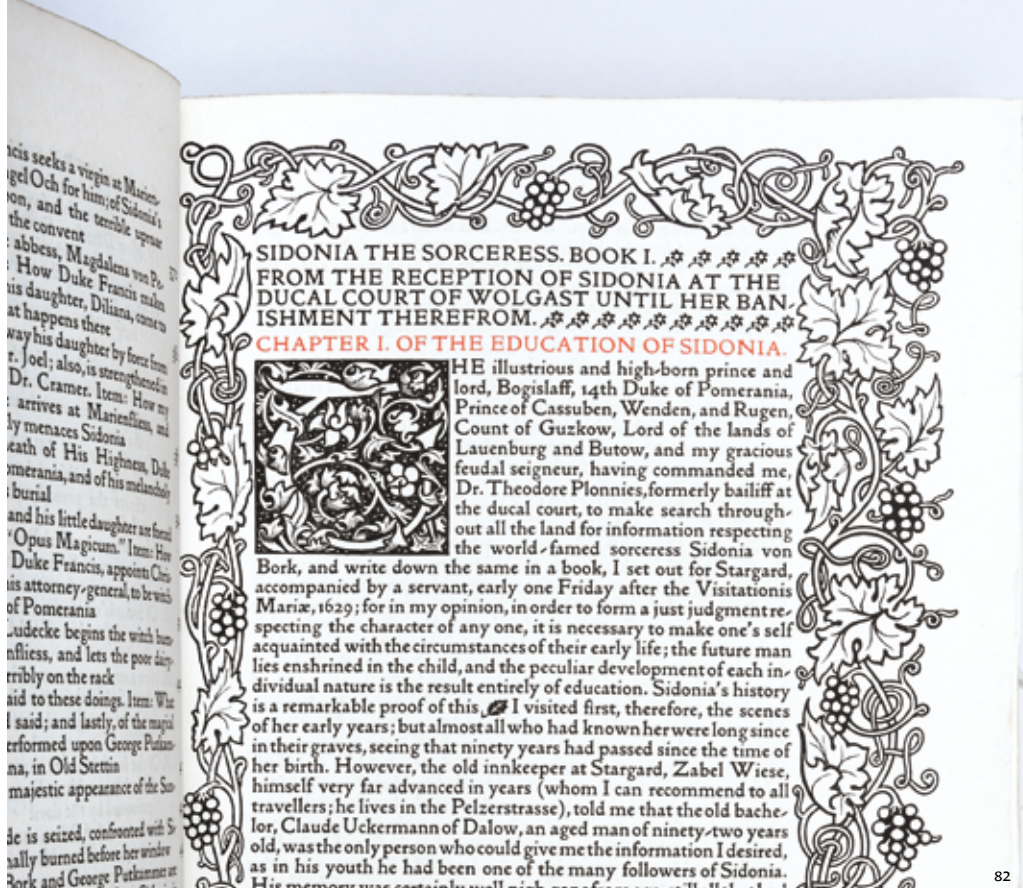 ncis seeks a virgin at Marien-
gel Och for him; of Sidonia's
on, and the terrible uproar
the convent
abbess, Magdalena von Pe-
How Duke Francis makes
his daughter, Diliana, come to
at happens there
way his daughter by force from
r. Joel; also, is strengthened in
Dr. Cramer. Item: How my
arrives at Marienfliess, and
ly menaces Sidonia
eath of His Highness, Duke
omerania, and of his melancholy
burial
and his little daughter are
"Opus Magicum." Item: How
Duke Francis, appoints
is attorney-general, to be
of Pomerania
Ludecke begins the witch
nfliess, and lets the poor
rribly on the rack
aid to these doings. Item: What
said; and lastly, of the magical
erformed upon George Putkam-
na, in Old Stettin
majestic appearance of the
de is seized, confronted with
nally burned before her window
Bork and George Putkammer at
SIDONIA THE SORCERESS. BOOK I.
FROM THE RECEPTION OF SIDONIA AT THE
DUCAL COURT OF WOLGAST UNTIL HER BAN-
ISHMENT THEREFROM.
CHAPTER I. OF THE EDUCATION OF SIDONIA.
THE illustrious and high-born prince and
lord, Bogislaff, 14th Duke of Pomerania,
Prince of Cassuben, Wenden, and Rugen,
Count of Guzkow, Lord of the lands of
Lauenburg and Butow, and my gracious
feudal seigneur, having commanded me,
Dr. Theodore Plonnies, formerly bailiff at
the ducal court, to make search through-
out all the land for information respecting
the world-famed sorceress Sidonia von
Bork, and write down the same in a book, I set out for Stargard,
accompanied by a servant, early one Friday after the Visitationis
Mariæ, 1629; for in my opinion, in order to form a just judgment re-
specting the character of any one, it is necessary to make one's self
acquainted with the circumstances of their early life; the future man
lies enshrined in the child, and the peculiar development of each in-
dividual nature is the result entirely of education. Sidonia's history
is a remarkable proof of this I visited first, therefore, the scenes
of her early years; but almost all who had known her were long since
in their graves, seeing that ninety years had passed since the time of
her birth. However, the old innkeeper at Stargard, Zabel Wiese,
himself very far advanced in years (whom I can recommend to all
travellers; he lives in the Pelzerstrasse), told me that the old bache-
lor, Claude Uckermann of Dalow, an aged man of ninety-two years
old, was the only person who could give me the information I desired,
as in his youth he had been one of the many followers of Sidonia.
His memory was certainly well nigh gone from
82